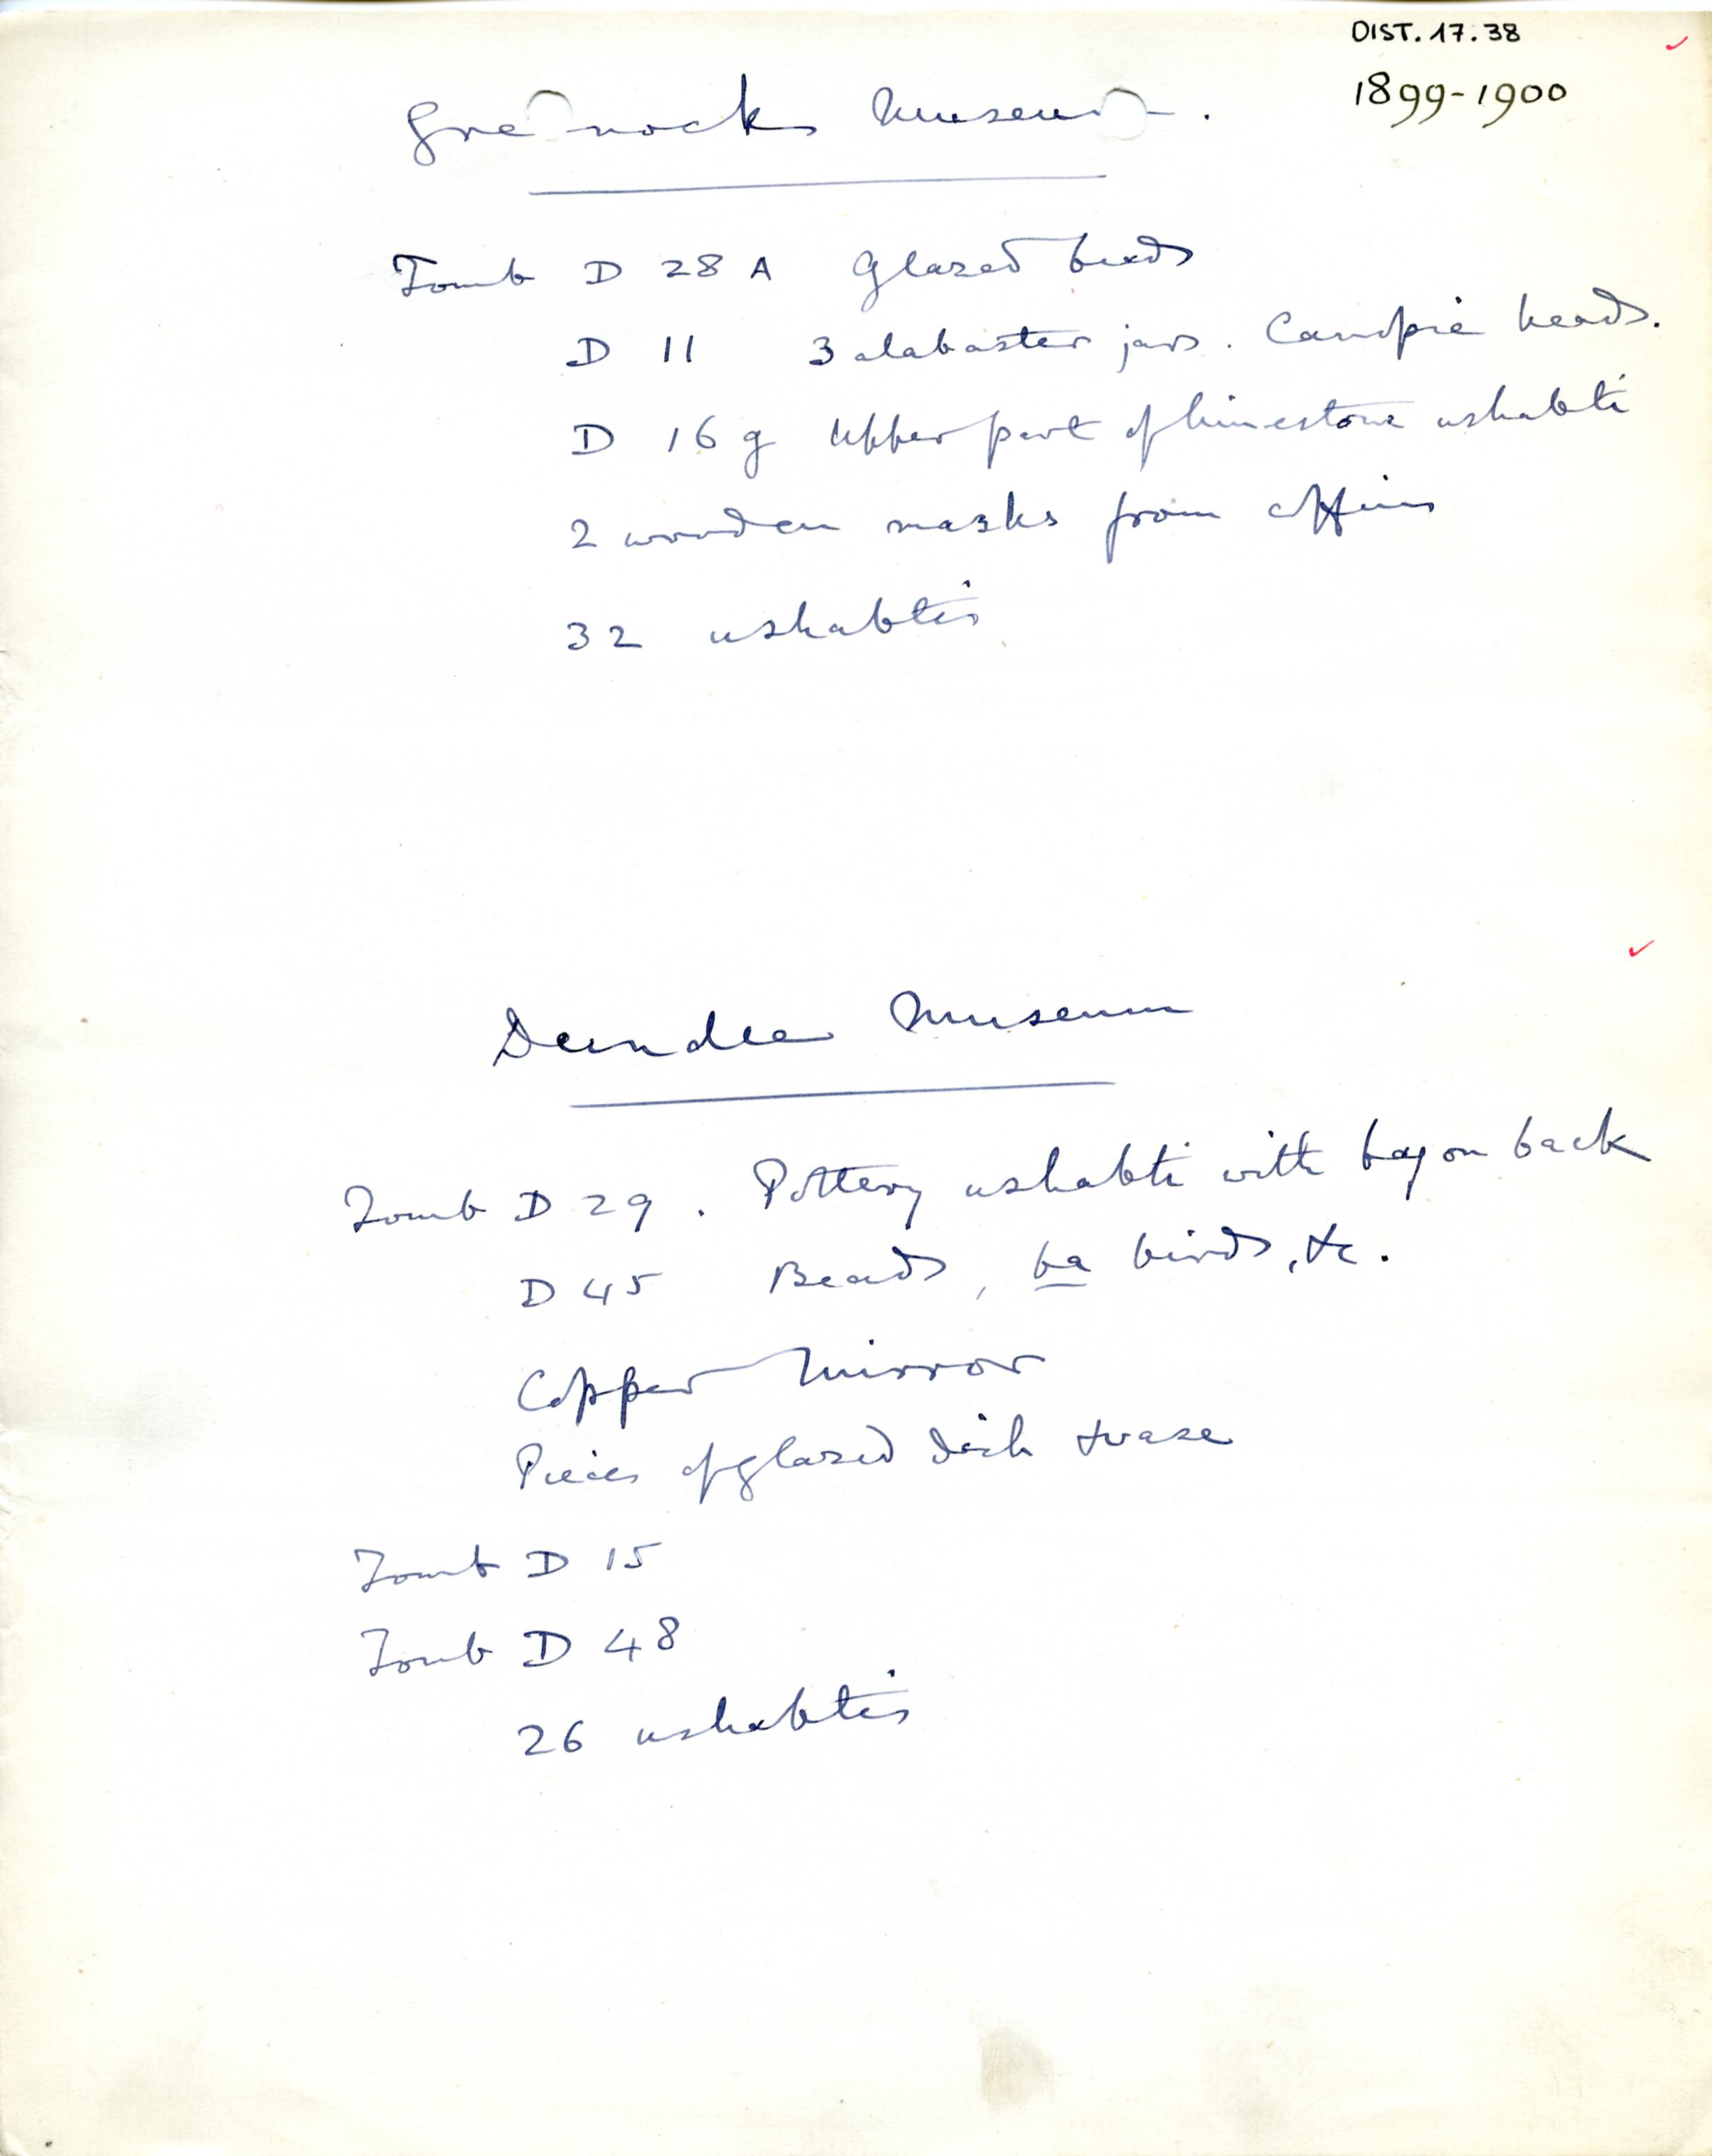 DIST. 17.38
1899-1900
Greenock Museum.
Tomb D 28 A Glazed beads
D 11 3 alabaster jars. Canopic heads.
D 16 g Upper part of limestone ushabti
2 wooden masks from coffins
32 ushabtis
Dundee Museum
Tomb D 29. Pottery ushabti with bag on back
D 45 Beads, ba birds, &c.
Copper Mirror
Pieces of glazed dish & vase
Tomb D 15
Tomb D 48
26 ushabtis